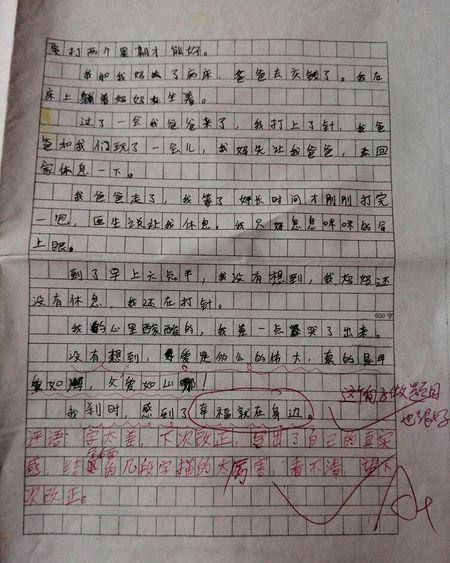 要打两个星期才能好。
我和我妈去了病床，爸爸去交钱了。我在
床上躺着妈妈在坐着。
过了一会我爸爸来了，我打上了针，我爸
爸和我们玩了一会儿，我妈先让我爸爸，去回
家休息一下。
我爸爸走了，我等了好长时间才刚刚打完
一吧，医生说让我休息，我只好息息咪咪的合
上眼。
到了早上六点半，我没有想到，我妈妈还
没有休息，我还在打针。
600字
我的心里酸酸的，我差一点哭了出来。
没有想到，爱是那么的伟大，真的是母
爱如海，父爱如山！
我刹时，感到了幸福就在身边。
这句子做题目
也很好
评语：字太差，下次改正，写出了自己的真实
感，结尾的几段字描的太厉害，看不清，望下
次改正。